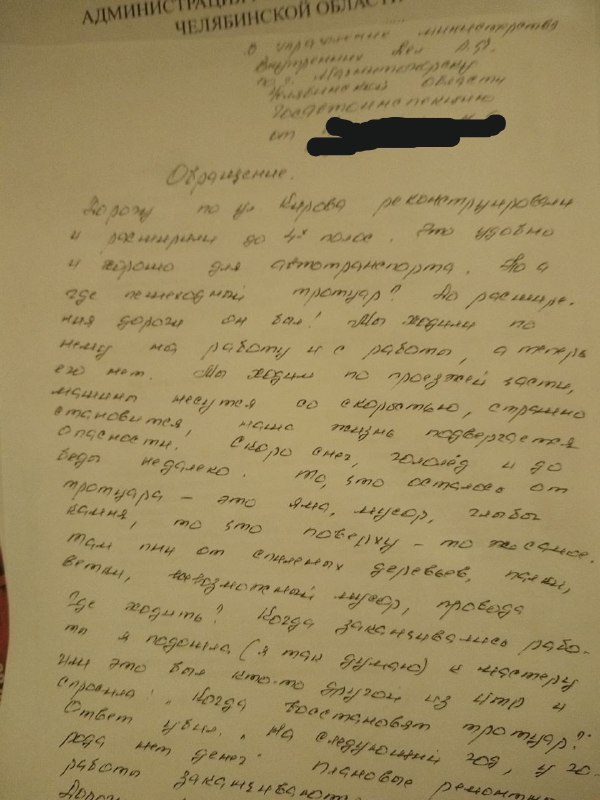 АДМИНИСТРАЦИЯ
ЧЕЛЯБИНСКОЙ ОБЛАСТИ
В управление министерства
Внутренних Дел Р.Ф.
по г. Магнитогорску
Челябинской области
Госавтоинспекцию
от
Обращение.
Дорогу по ул. Кирова реконструировали
и расширили до 4х полос. Это удобно
и хорошо для автотранспорта. Но а
где пешеходный тротуар? До расшире-
ния дороги он был! Мы ходили по
нему на работу и с работы, а теперь
его нет. Мы ходим по проезжей части,
машины несутся со скоростью, страшно
становится, наша жизнь подвергается
опасности. Скоро снег, гололёд и до
беды недалеко. То, что осталось от
тротуара – это яма, мусор, глыбы
камня, то что поверху – то же самое.
там пни от спиленых деревьев, палки,
ветки, всевозможный мусор, провода
Где ходить? Когда заканчивались рабо-
ты я подошла (я так думаю) к мастеру
или это был кто-то другой из ИТР и
спросила: "Когда восстановят тротуар?"
Ответ убил. "На следующий год, у го-
рода нет денег" Плановые ремонтные
работы заканчивают